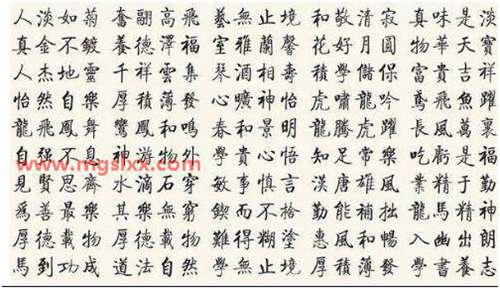 人淡如菊 奮翮高飛 藝無止境 和敬清寂 真味是淡
真金不鍍 養德澤福 室雅蘭馨 花好月圓 物華天寶
人杰地靈 千祥雲集 琴酒相壽 積學儲保 富貴吉祥
怡然自樂 厚積薄發 心曠神怡 虎嘯龍吟 鳶飛魚躍
龍飛鳳舞 鸞鳳和鳴 春和景明 龍騰虎躍 長風萬里
自強不息 神游物外 學貴心悟 知足常樂 吃虧是福
www.mgslxx.com
見賢思齊 水滴石穿 敏事慎言 漢唐雄風 業精于勤
爲善最樂 其樂無窮 鍥而不捨 勤能補拙 龍馬精神
厚德載物 厚德載物 難得糊塗 惠風和暢 入幽出朗
馬到功成 道法自然 學無止境 厚積薄發 學書養志